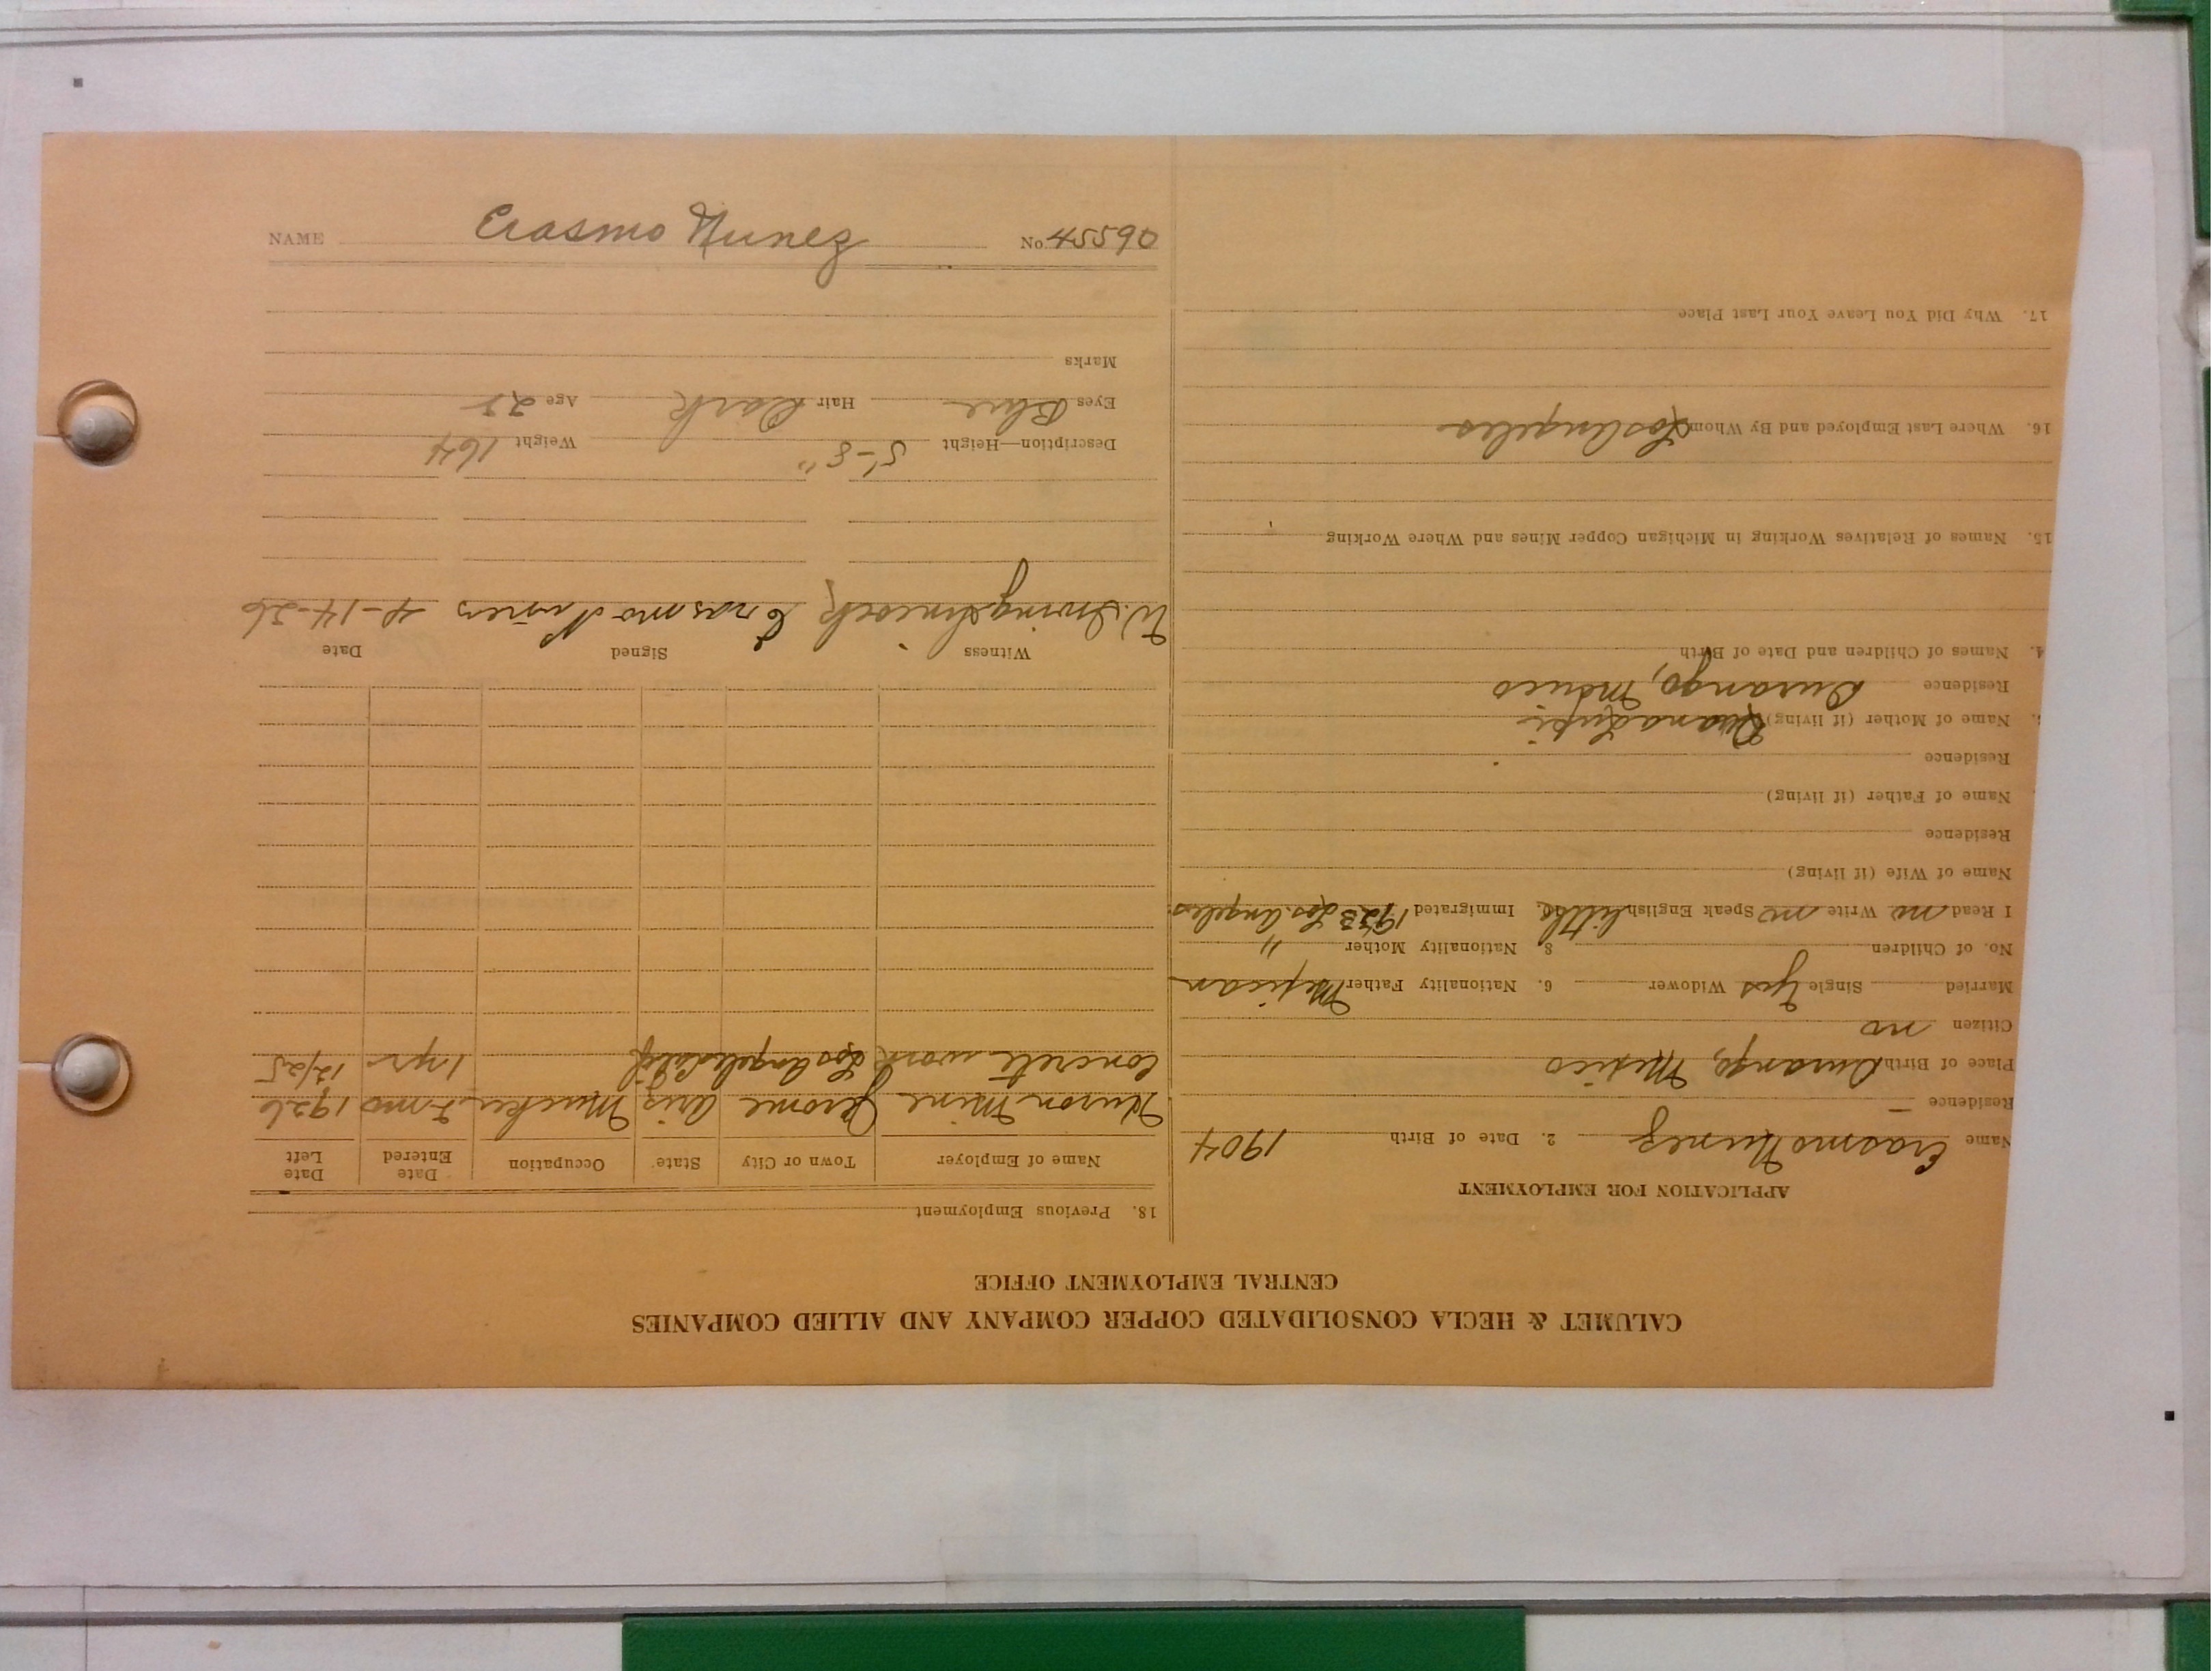 NAME Erasmo Nunez No. 45590
CALUMET & HECLA CONSOLIDATED COPPER COMPANY AND ALLIED COMPANIES
CENTRAL EMPLOYMENT OFFICE
APPLICATION FOR EMPLOYMENT
Name Erasmo Nunez 2. Date of Birth 1904
Residence —
Place of Birth Durango, Mexico
Citizen no
Married Single Yes Widower 6. Nationality Father Mexican
No. of Children 8 Nationality Mother "
I Read no Write no Speak English little 10. Immigrated 1923 Los Angeles.
Name of Wife (if living)
Residence
Name of Father (if living)
Residence
Name of Mother (if living)
Residence Durango, Mexico
4. Names of Children and Date of Birth
15. Names of Relatives Working in Michigan Copper Mines and Where Working
16. Where Last Employed and By Whom Los Angeles
17. Why Did You Leave Your Last Place
18. Previous Employment
Name of Employer Town or City State Occupation Date Entered Date Left
Mine Jerome Aris Mucker mo 1926
Concrete work Los Angeles Calif 1 yr 12/25
Witness Signed Date
W. Irving Erasmo Nunes 4-14-26
Description—Height 5'-8" Weight 164
Eyes Blue Hair Dark Age
Marks